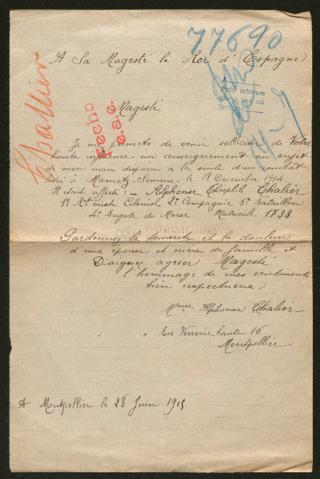 77690
A Sa Magesté le Roi d'Espagne
Challier
Hecho
Magesté
Je me permets de venir solliciter de Votre
haute un renseignement au sujet
de mon mari disparu à la suite d'un combat
livré à Mametz-Somme le 18 Decembre 1914
Il était affecté :- Alphonse Théophile Chaliér
Rt mixte Colonial 2e Compagnie 5e Bataillon
Brigade du Maroc Matricule 1733
Pardonnez la témérité et la douleur
d'une épouse et mère de famille et
Daignez agréer Magesté
l'hommage de mes sentiments
bien respectueux
Mme Alphonse Chaliér
Rue haute 16
Montpellier
A Montpellier le 28 Juin 1915